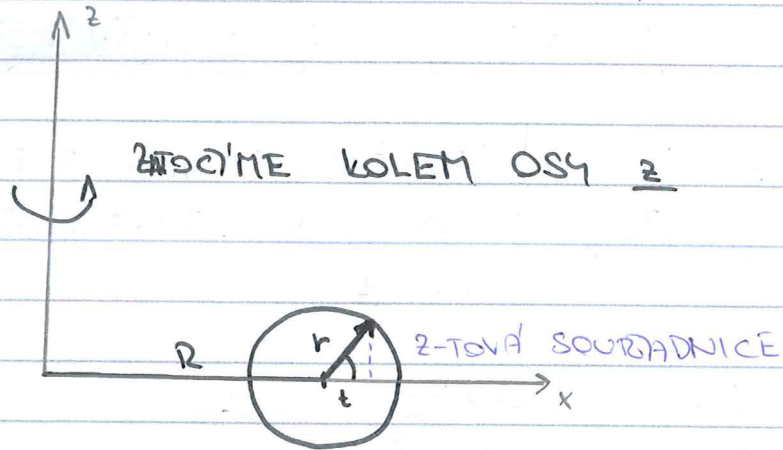 z
ZATOČÍME KOLEM OSY z
R
r
t
Z-TOVÁ SOUŘADNICE
x